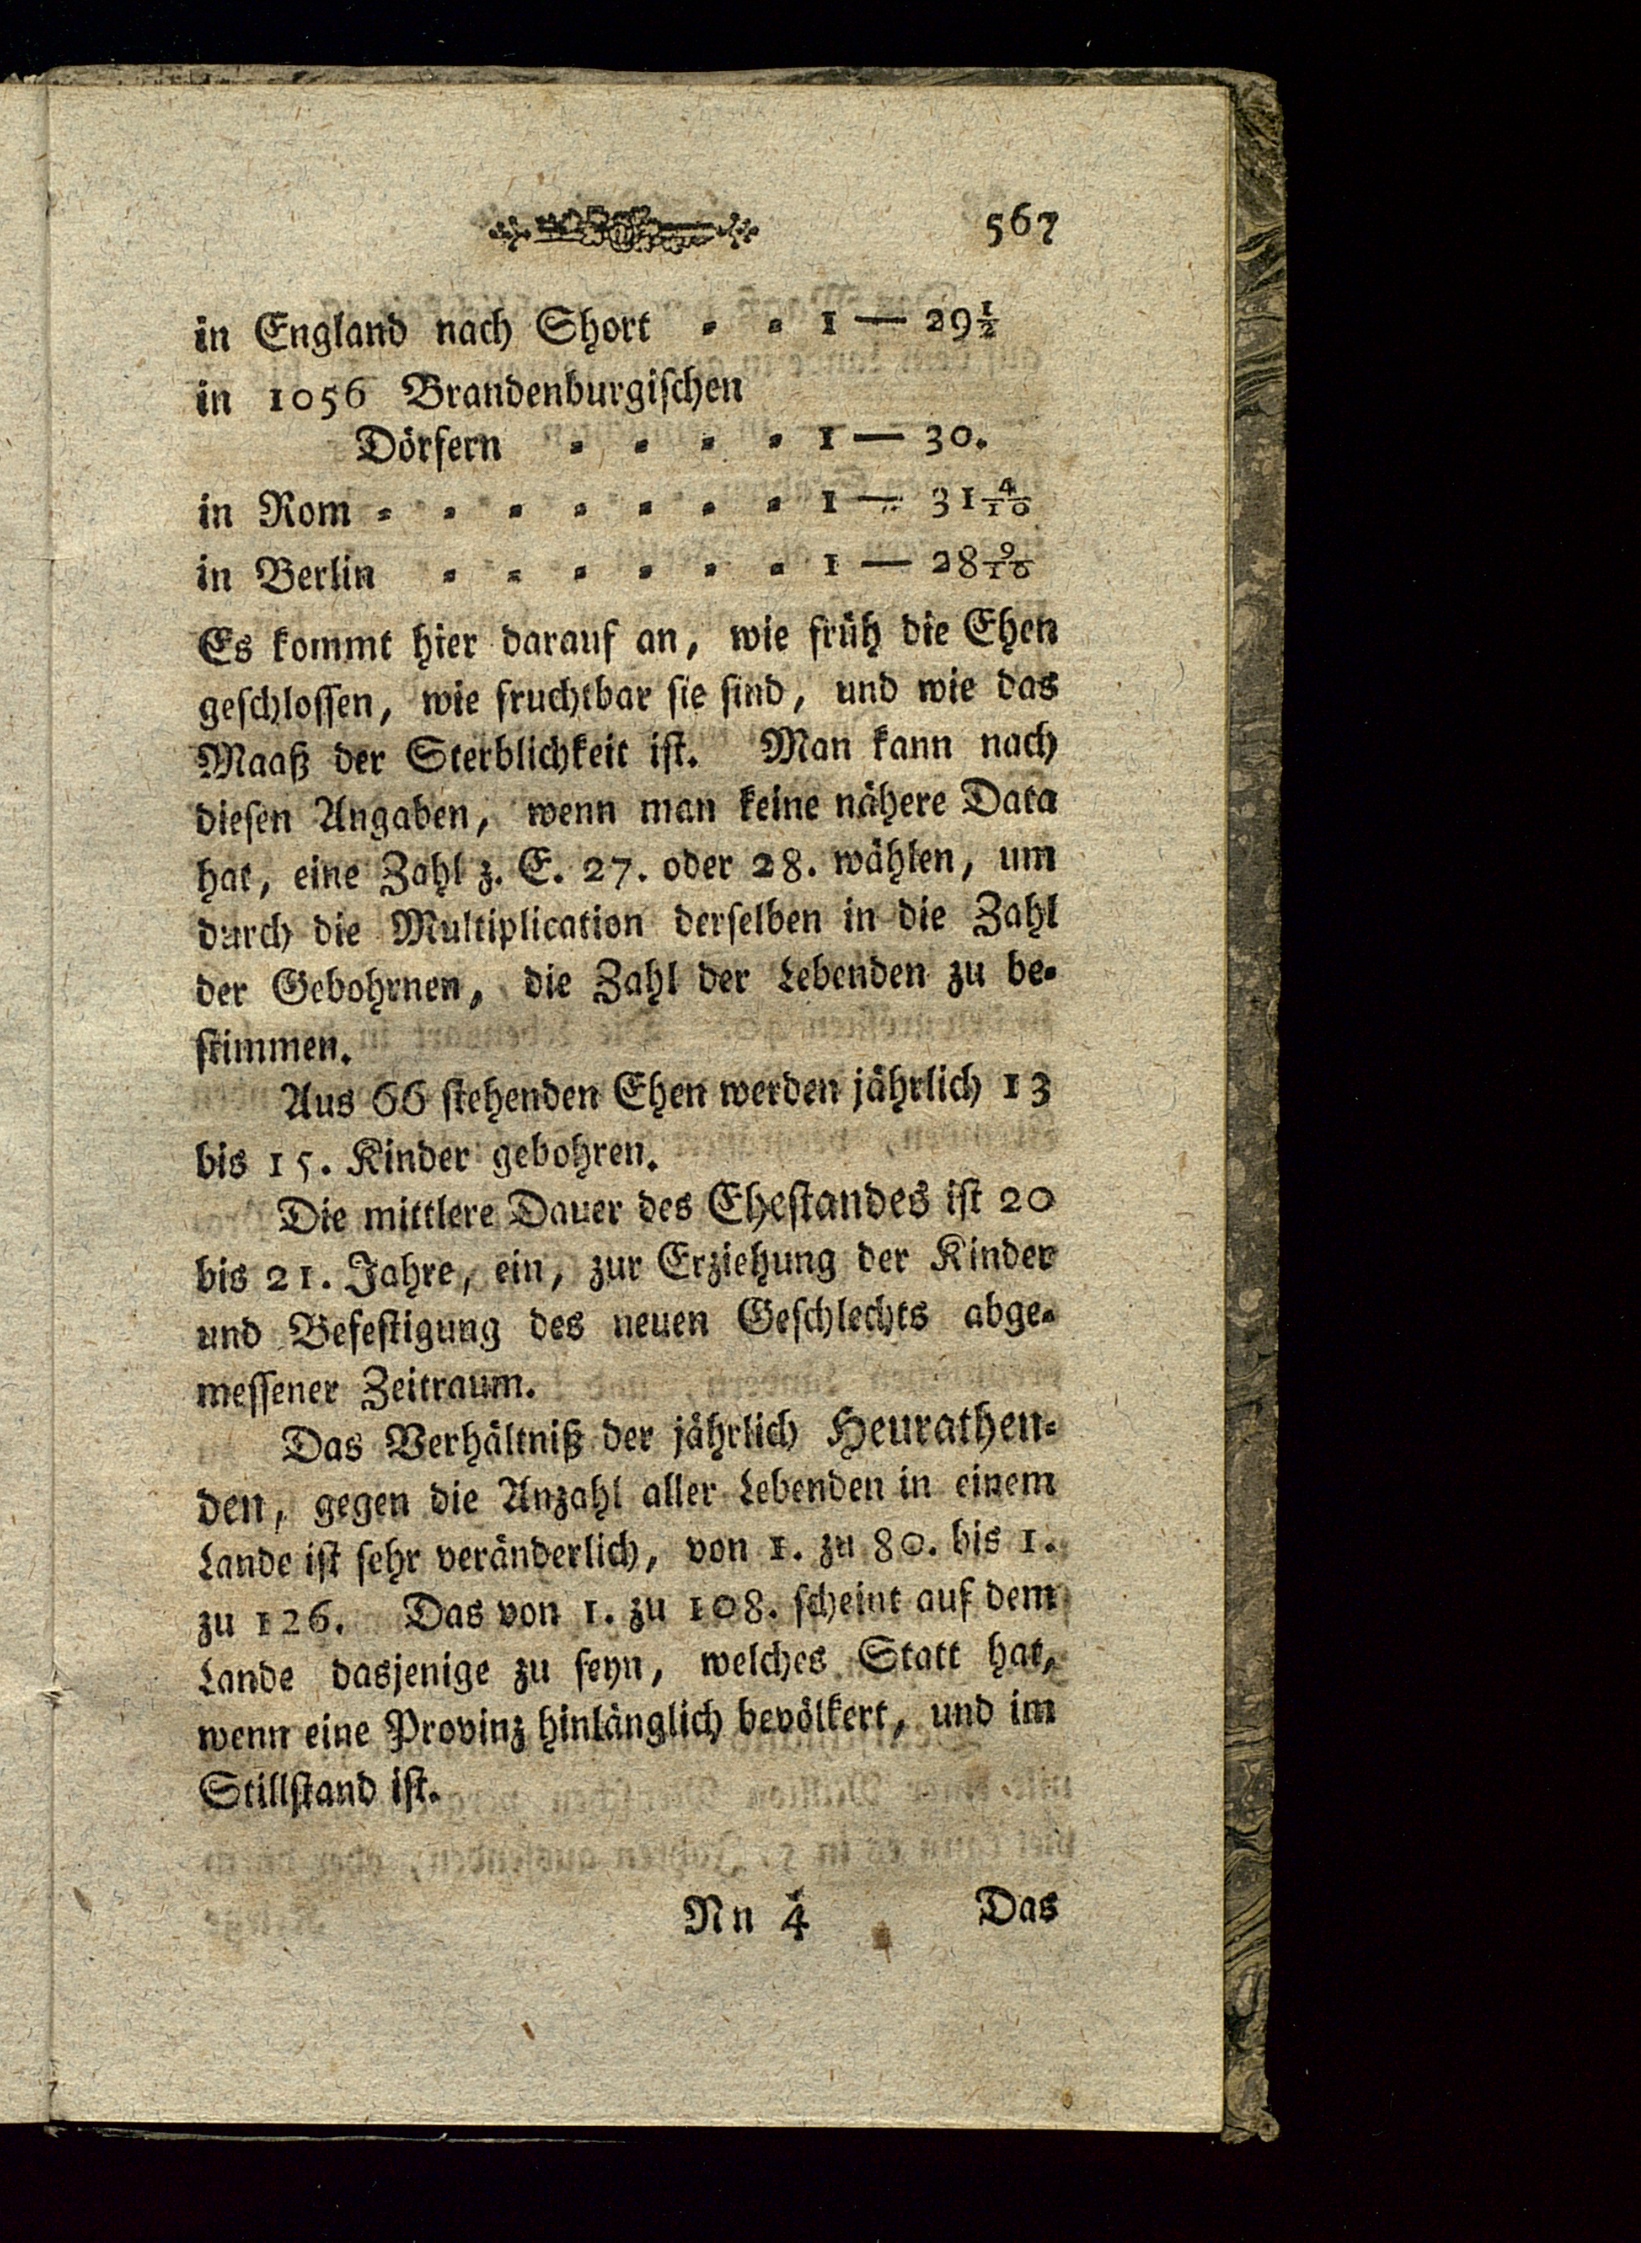 567
in England nach Short = = 1 — 29½
in 1056 Brandenburgischen
Dörfern = = = = 1 — 30.
in Rom = = = = = = = 1 — 31 4/10
in Berlin = = = = = = 1 — 28 9/10
Es kommt hier darauf an, wie früh die Ehen
geschlossen, wie fruchtbar sie sind, und wie das
Maaß der Sterblichkeit ist. Man kann nach
diesen Angaben, wenn man keine nähere Data
hat, eine Zahl z. E. 27. oder 28. wählen, um
durch die Multiplication derselben in die Zahl
der Gebohrnen, die Zahl der Lebenden zu be=
stimmen.
Aus 66 stehenden Ehen werden jährlich 13
bis 15. Kinder gebohren.
Die mittlere Dauer des Ehestandes ist 20
bis 21. Jahre, ein, zur Erziehung der Kinder
und Befestigung des neuen Geschlechts abge=
messener Zeitraum.
Das Verhältniß der jährlich Heurathen=
den, gegen die Anzahl aller Lebenden in einem
Lande ist sehr veränderlich, von 1. zu 80. bis 1.
zu 126. Das von 1. zu 108. scheint auf dem
Lande dasjenige zu seyn, welches Statt hat,
wenn eine Provinz hinlänglich bevölkert, und im
Stillstand ist.
Nn 4 Das